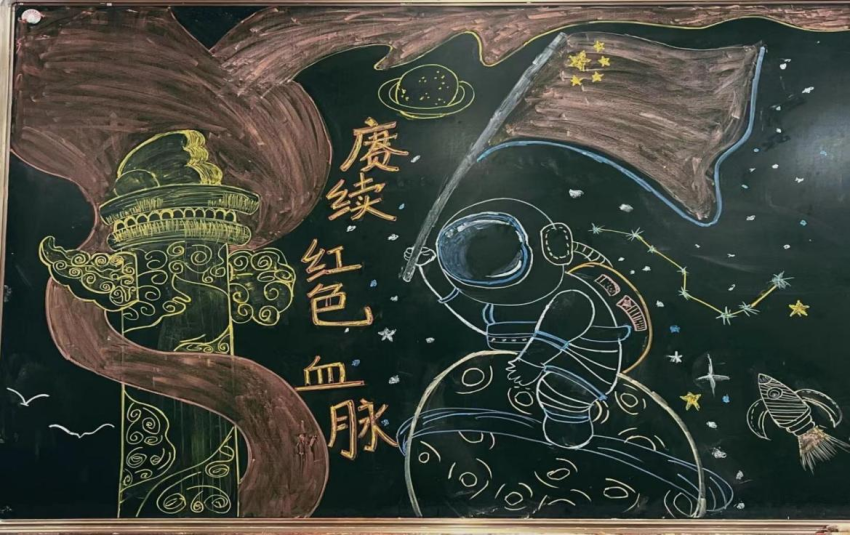 赓续
红色
血脉